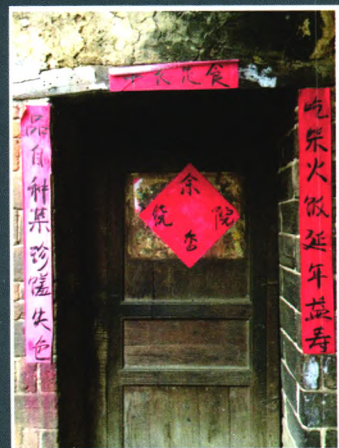 食
吃柴火饭延年益寿
品自种菜珍馐失色
余
绕 院
香